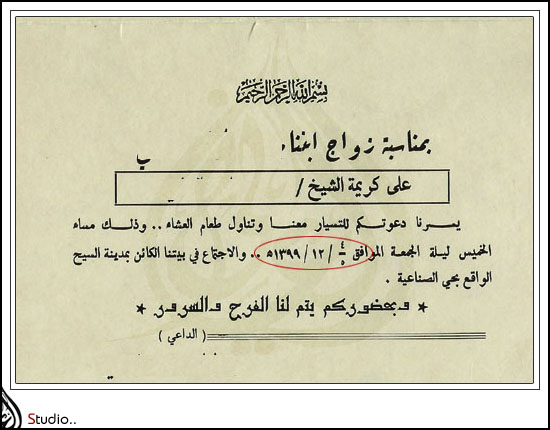 بسم الله الرحمن الرحيم
بمناسبة زواج ابننا
ب
على كريمة الشيخ /
يسرنا دعوتكم للتسيار معنا وتناول طعام العشاء .. وذلك مساء
الخميس ليلة الجمعة الموافق ٤/٥ / ١٢ / ١٣٩٩ه .. والاجتماع في بيتنا الكائن بمدينة السيح
الواقع بحي الصناعية .
* وبحضوركم يتم لنا الفرح والسرور *
( الداعي )
Studio..